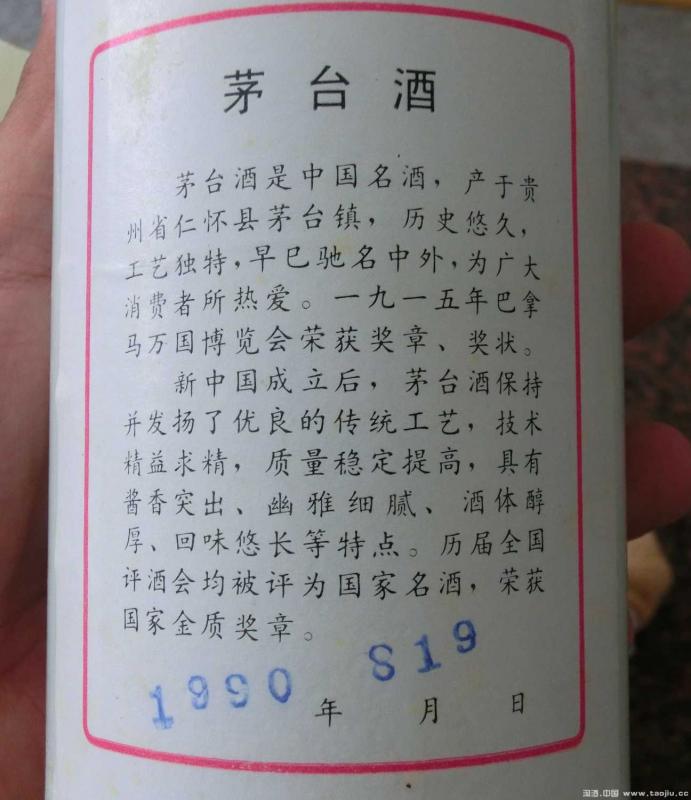 茅台酒
茅台酒是中国名酒，产于贵
州省仁怀县茅台镇，历史悠久，
工艺独特，早巴驰名中外，为广大
消费者所热爱。一九一五年巴拿
马万国博览会荣获奖章、奖状。
新中国成立后，茅台酒保持
并发扬了优良的传统工艺，技术
精益求精，质量稳定提高，具有
酱香突出、幽雅细腻、酒体醇
厚、回味悠长等特点。历届全国
评酒会均被评为国家名酒，荣获
国家金质奖章。
1990 S19
年 月 日
淘酒.中国 www.taojiu.cc